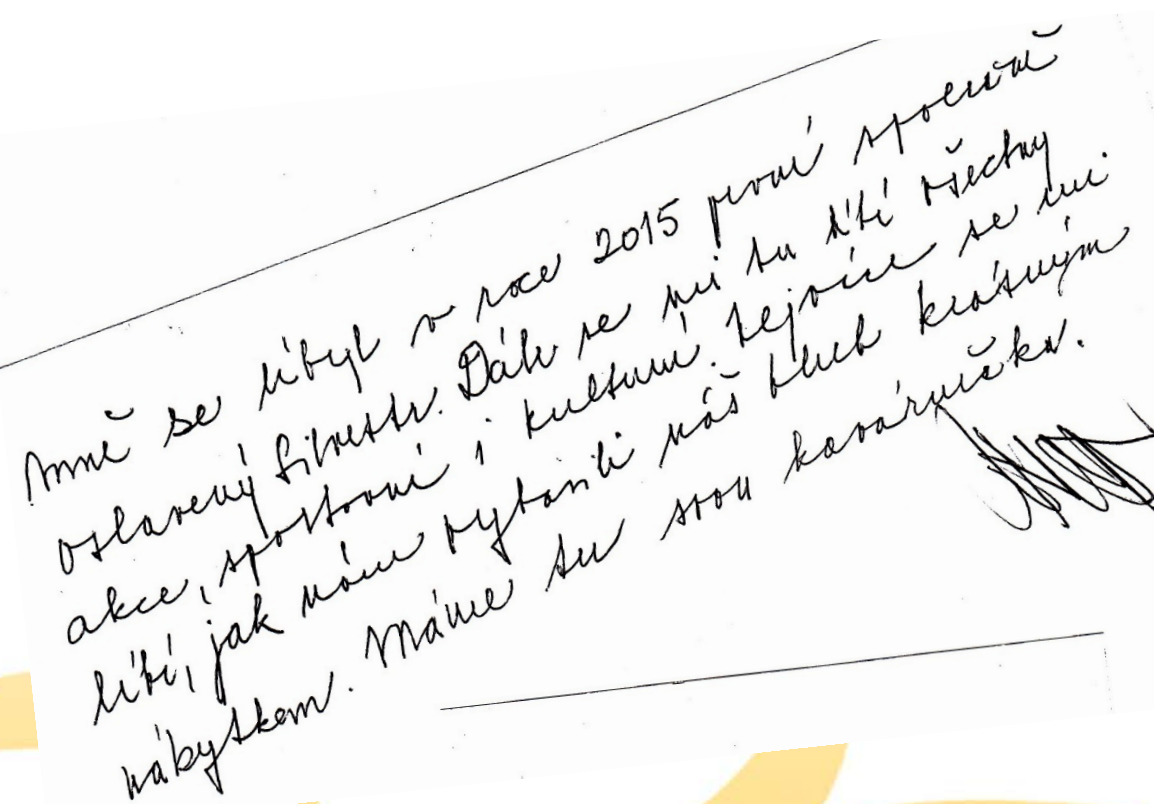 Mně se líbyl v roce 2015 první společně
oslavený Silvestr. Dále se mi tu líbí všechny
akce, sportovní i kulturní. Nejvíce se mi
líbí, jak nám vybavili náš klub krásným
nábytkem. Máme tu svou kavárničku.